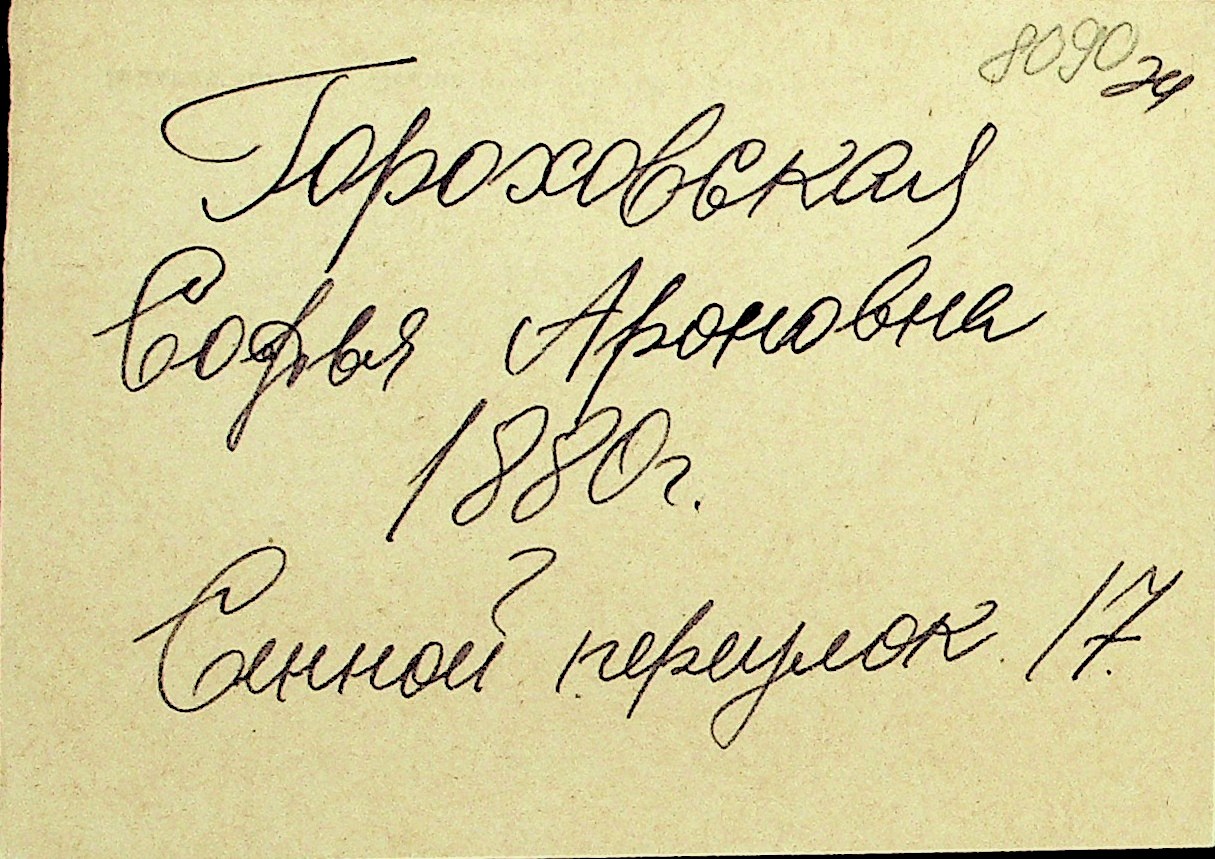 8090 24
Гороховская
Софья Ароновна
1880г.
Сенной переулок 17.